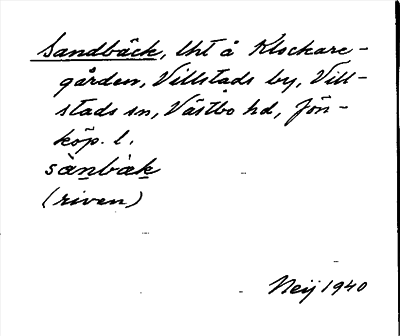 Sandbäck, lht å Klockare-
gården, Villstads by, Vill-
stads sn, Västbo hd, Jön-
köp. l.
sànbàk
(riven)
Neij 1940